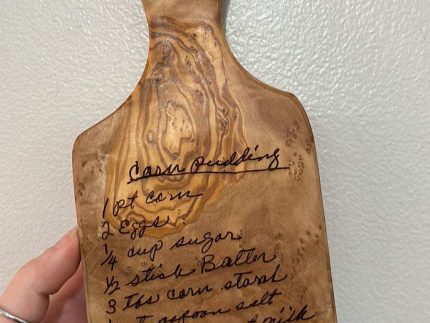 Corn Pudding
1 pt corn
2 Eggs
1/4 cup sugar
1/2 stick Butter
3 Tbs corn starch
Teaspoon salt
milk